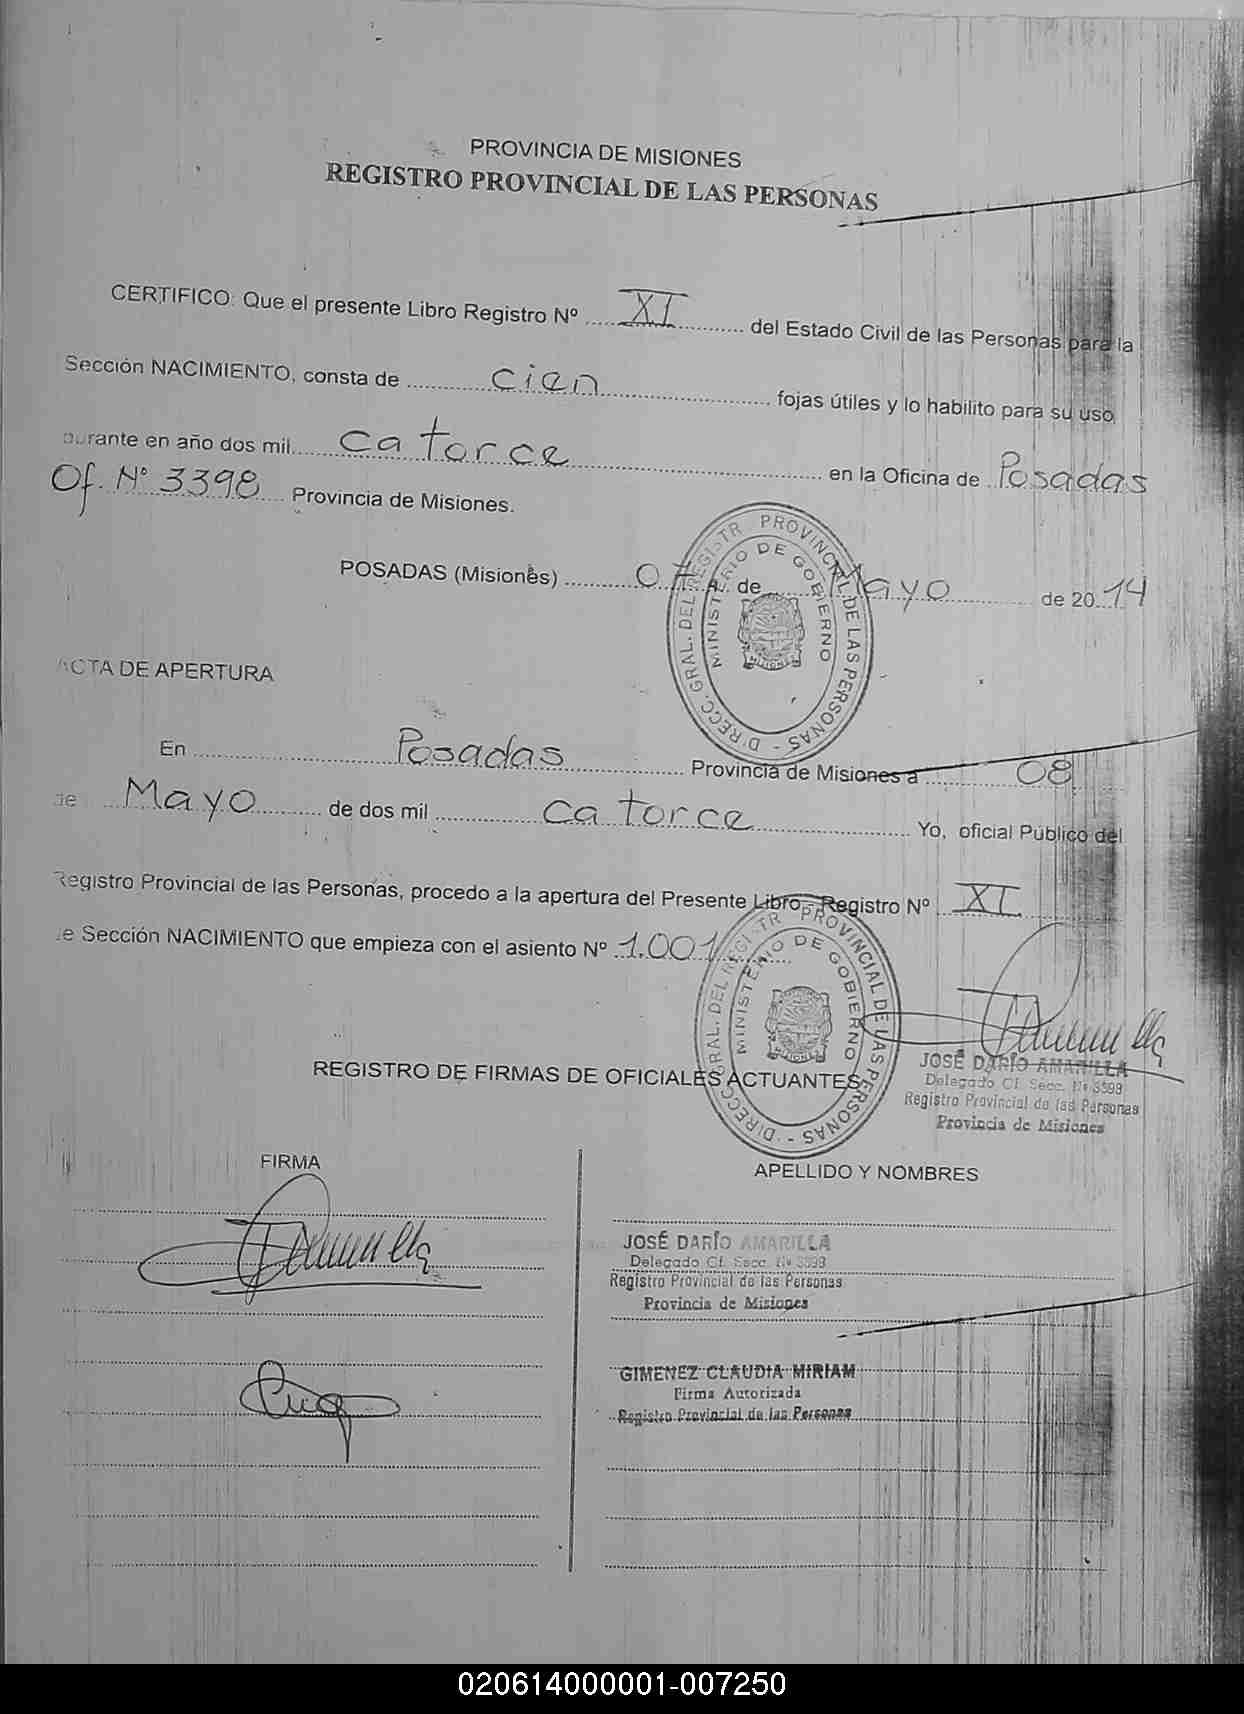 PROVINCIA DE MISIONES
REGISTRO PROVINCIAL DE LAS PERSONAS
CERTIFICO: Que el presente Libro Registro Nº XI del Estado Civil de las Personas para la
Sección NACIMIENTO, consta de cien fojas útiles y lo habilito para su uso
durante en año dos mil catorce en la Oficina de Posadas
Of. Nº 3398 Provincia de Misiones.
POSADAS (Misiones) 07 de Mayo de 2014
DIRECC. GRAL. DEL REGISTR PROVINCIAL DE LAS PERSONAS
MINISTERIO DE GOBIERNO
ACTA DE APERTURA
En Posadas Provincia de Misiones a 08
de Mayo de dos mil catorce Yo, oficial Público del
Registro Provincial de las Personas, procedo a la apertura del Presente Libro, Registro Nº XI
de Sección NACIMIENTO que empieza con el asiento Nº 1.001
DIRECC. GRAL. DEL REGISTR PROVINCIAL DE LAS PERSONAS
MINISTERIO DE GOBIERNO
JOSÉ DARÍO AMARILLA
Delegado Cf. Secc. Nº 3398
Registro Provincial de las Personas
Provincia de Misiones
REGISTRO DE FIRMAS DE OFICIALES ACTUANTES
FIRMA
APELLIDO Y NOMBRES
JOSÉ DARÍO AMARILLA
Delegado Cf. Secc. Nº 3398
Registro Provincial de las Personas
Provincia de Misiones
GIMENEZ CLAUDIA MIRIAM
Firma Autorizada
Registro Provincial de las Personas
020614000001-007250